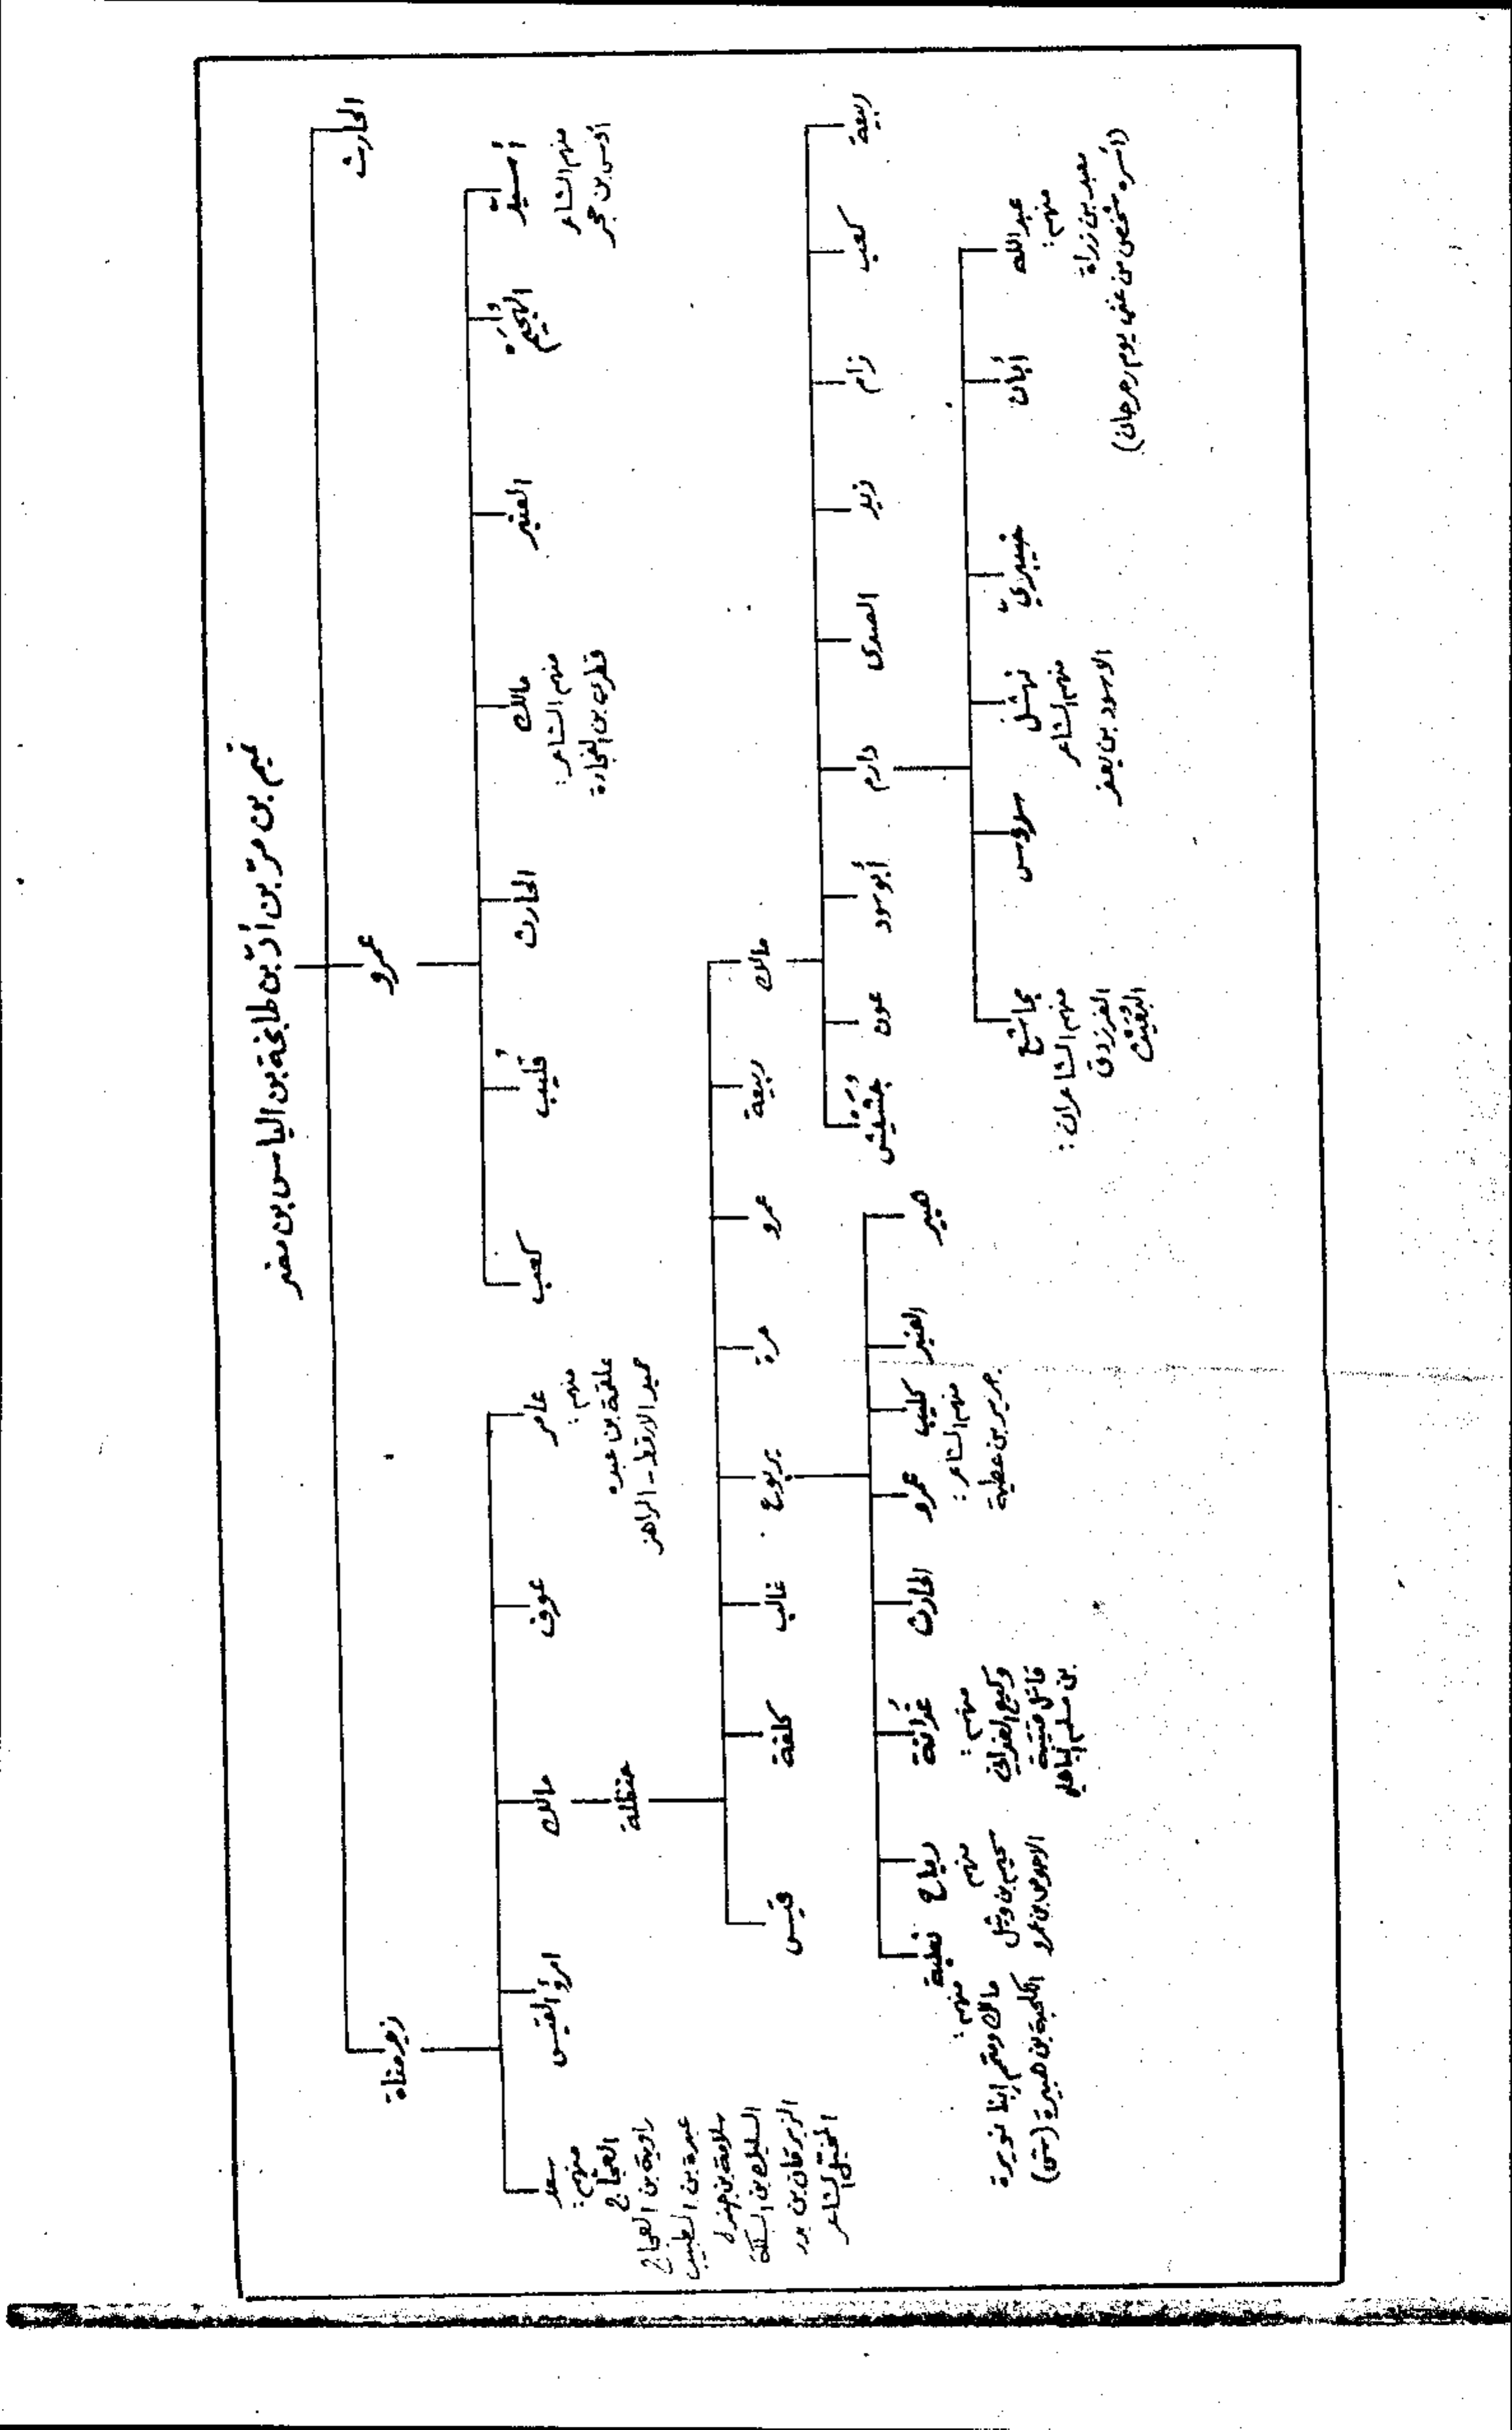 تميم بن مرّ بن أدّ بن طابخة بن الياس بن مضر
الحارث
عمرو
زيد مناة
أُسيّد
منهم الشاعر
أوس بن حجر
الهُجَيْم
العنبر
مالك
منهم الشاعر:
قطري بن الفجاءة
الحارث
قُليب
كعب
عامر
منهم:
علقمة بن عبده
حميد الارقط - الراجز
عوف
مالك
امرؤ القيس
سعد
منهم:
العجّاج
رؤبة بن العجاج
عبدة بن الطبيب
سلامة بن جندل
السليك بن السلكة
الزبرقان بن بدر
المخبّل الشاعر
حنظلة
مالك
ربيعة
عمرو
مرة
يربوع
غالب
كلفة
قيس
ربيعة
كعب
زام
زيد
الصدى
دارم
أبو سود
عون
جُشَيْش
هبير
العنبر
كليب
منهم الشاعر:
جرير بن عطية
عمرو
الحارث
غُدانة
منهم:
وكيع الغداني
قاتل قتيبة
بن مسلم الباهلي
رياح
منهم
سحيم بن وثيل
الاحوص بن عمرو
ثعلبة
منهم:
مالك ومتمم إبنا نويرة
الكلحبة بن هبيرة
عبد الله
منهم:
معبد بن زراة
(أسره شخص من غني يوم رحرحان)
أبان
خيبريّ
نهشل
منهم الشاعر
الاسود بن يعفر
سدوس
مجاشع
منهم الشاعران:
الفرزدق
البَعيث